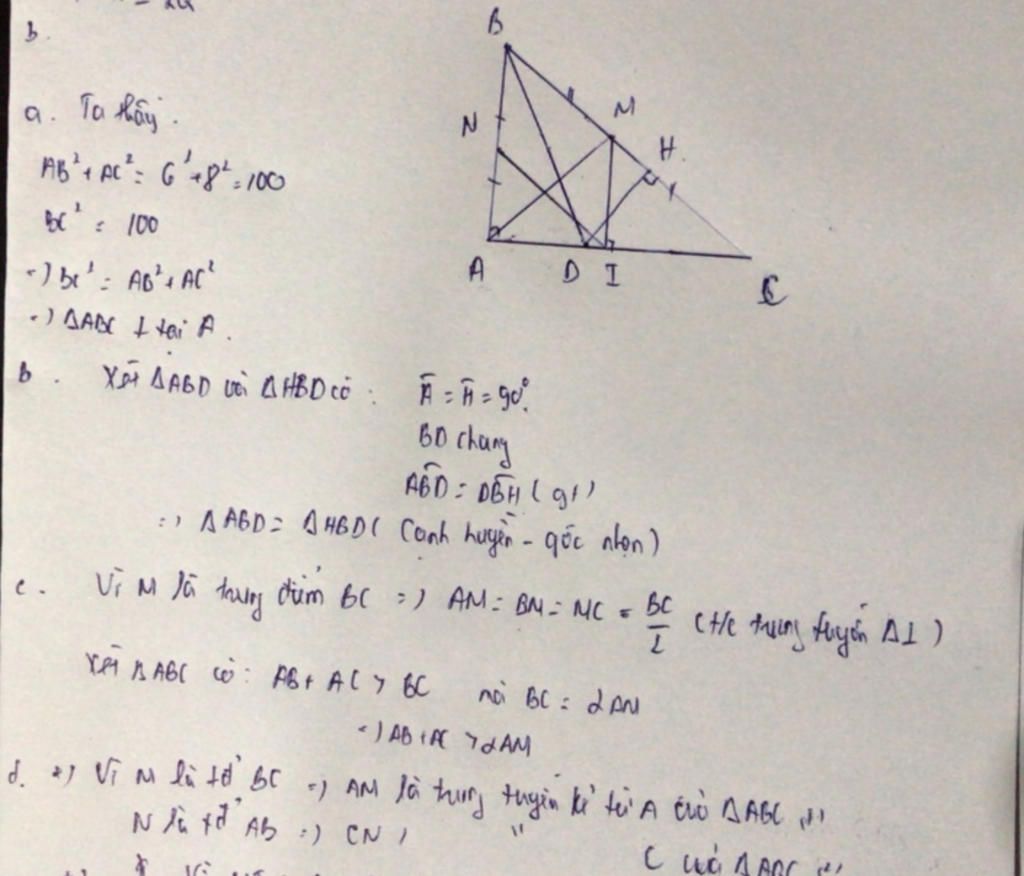 b.
a. Ta thấy.
AB² + AC² = 6² + 8² = 100
BC² = 100
=) BC² = AB² + AC²
=) ΔABC ⊥ tại A.
B
N
M
H.
A
D
I
C
b. Xét ΔABD với ΔHBD có: Â = Ĥ = 90°.
BD chung
AB̂D = DB̂H (gt)
=) ΔABD = ΔHBD (Cạnh huyền - góc nhọn)
c. Vì M là trung điểm BC =) AM = BM = MC = BC/2 (t/c trung tuyến Δ⊥)
Xét ΔABC có: AB + AC > BC mà BC = 2AM
=) AB + AC > 2AM
d. +) Vì M là tđ BC =) AM là trung tuyến kẻ từ A của ΔABC
N là tđ AB =) CN , " C của ΔABC
Vì